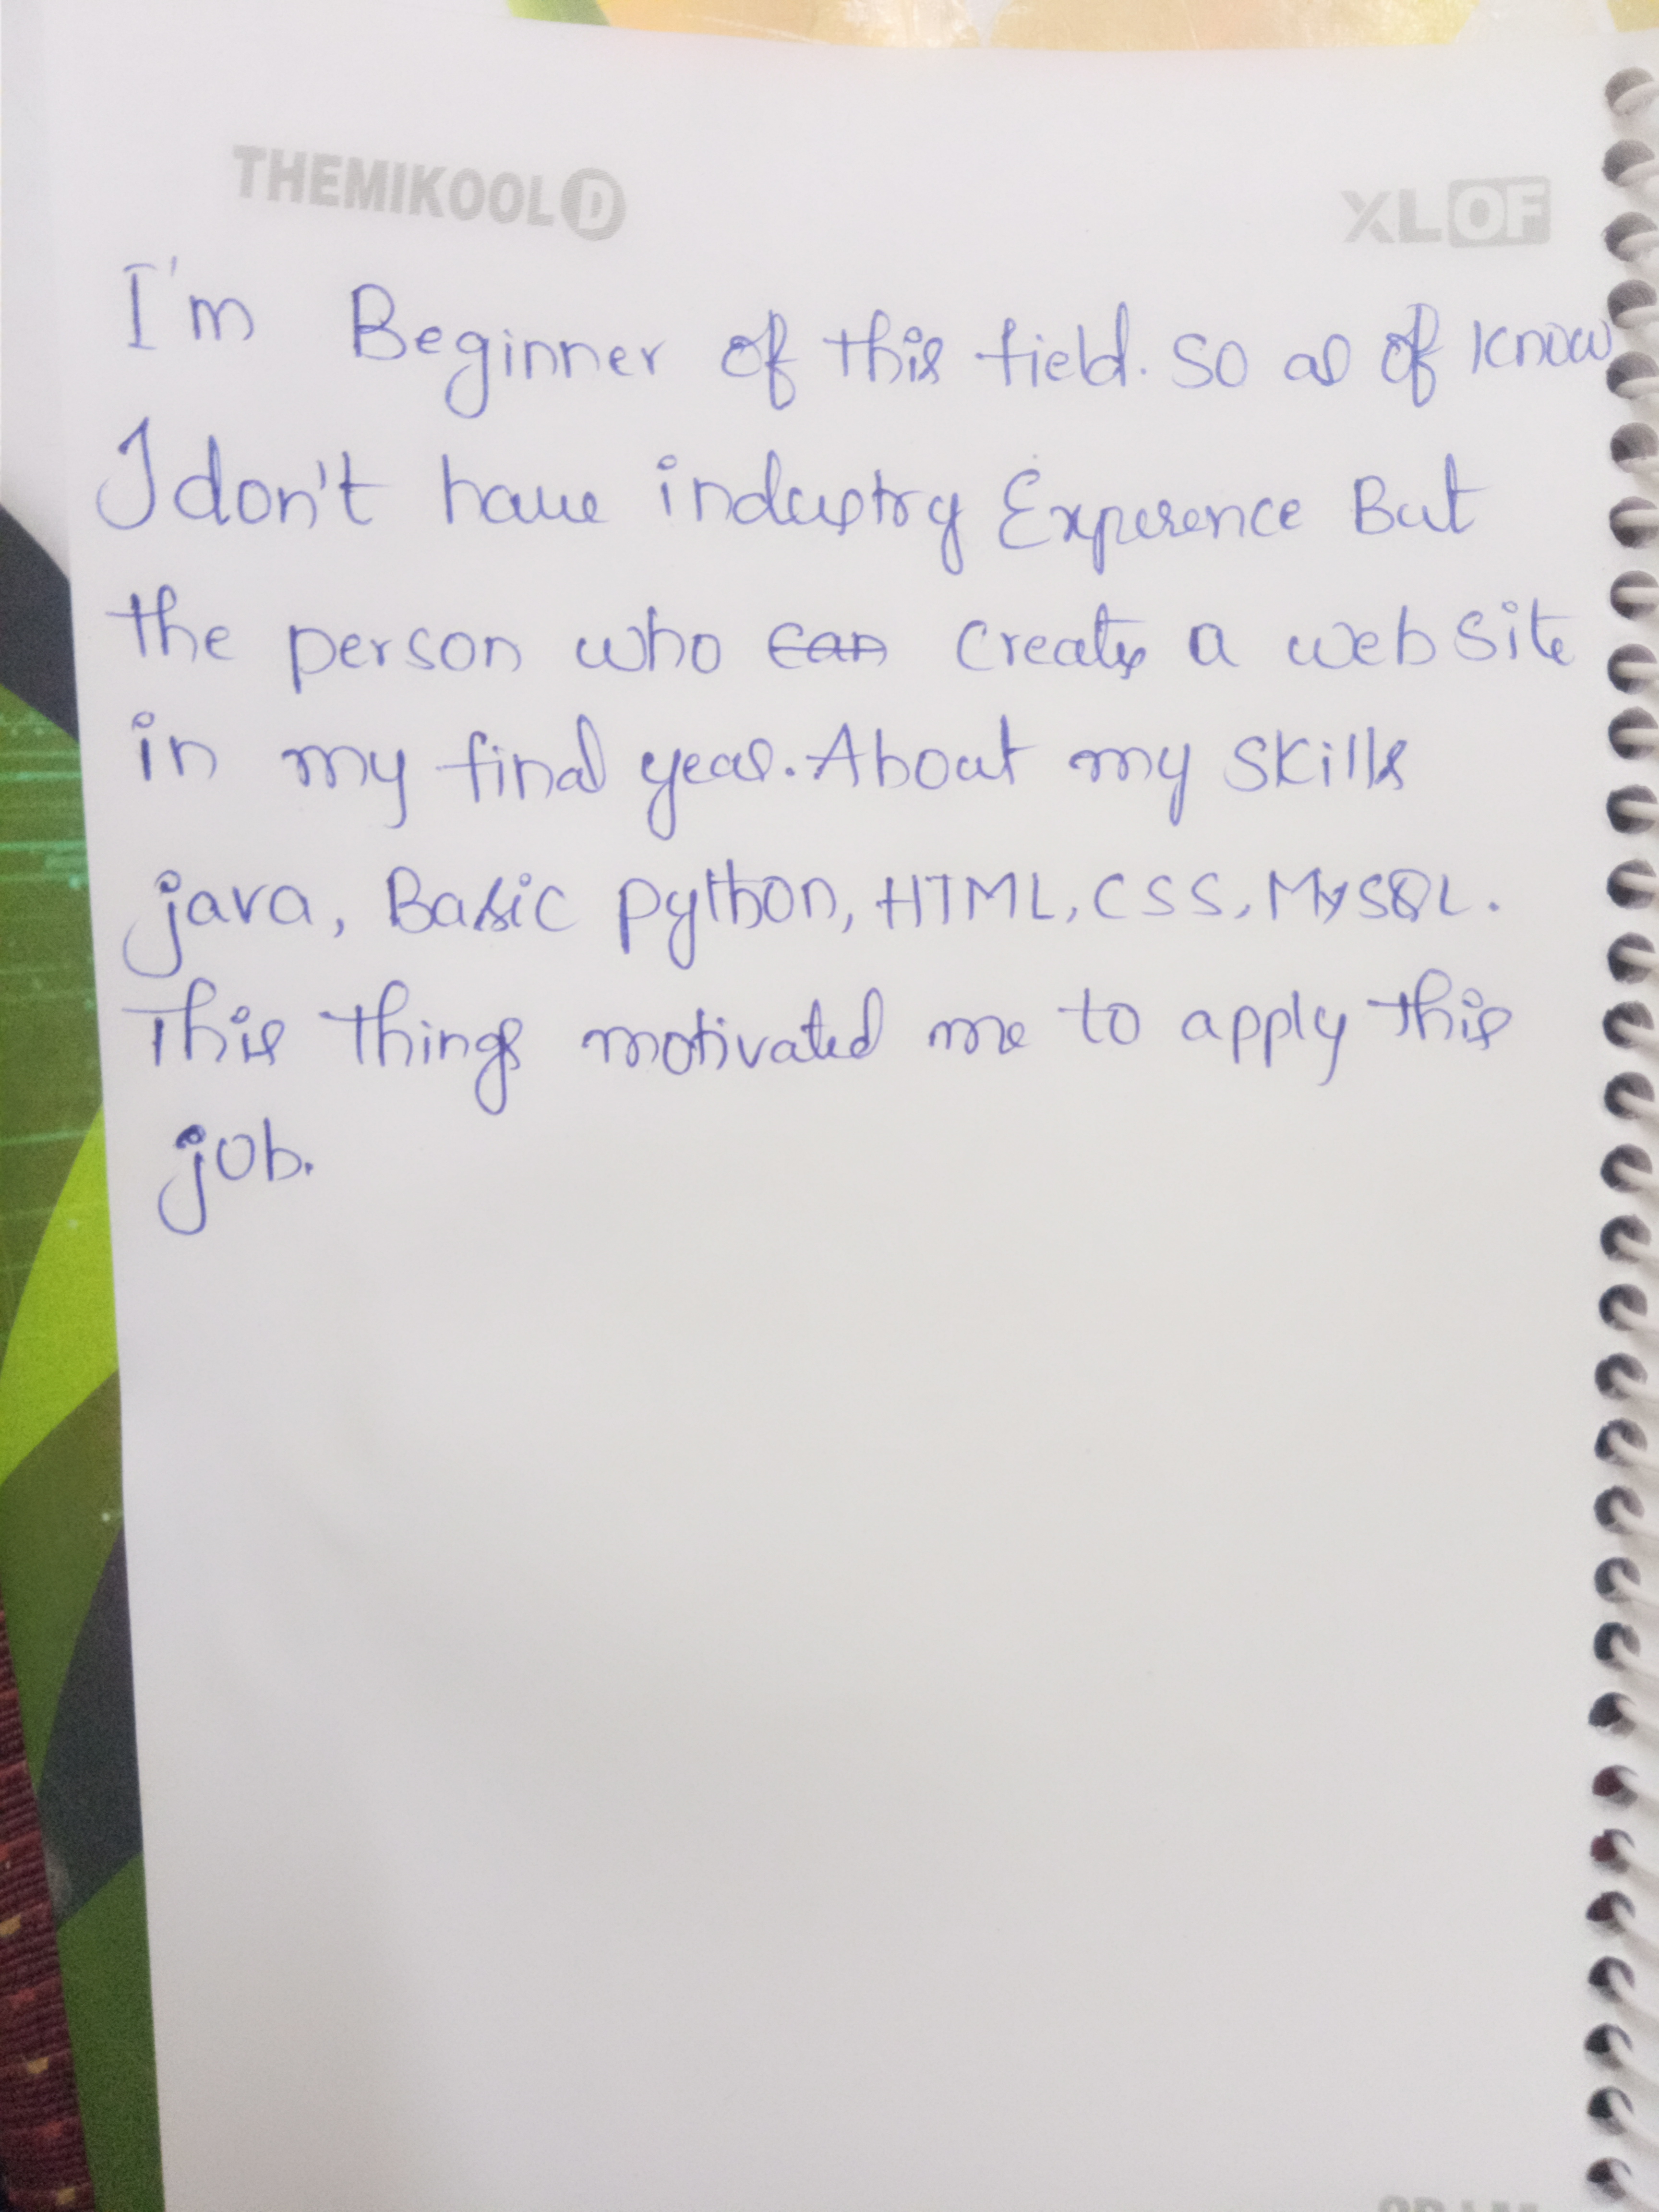 THEMIKOOL D XLOF
I'm Beginner of this field. so as of know
I don't have industry Experence But
the person who can creates a web site
in my final year. About my skills
java, Basic python, HTML, CSS, MySQL.
This things motivated me to apply this
job.